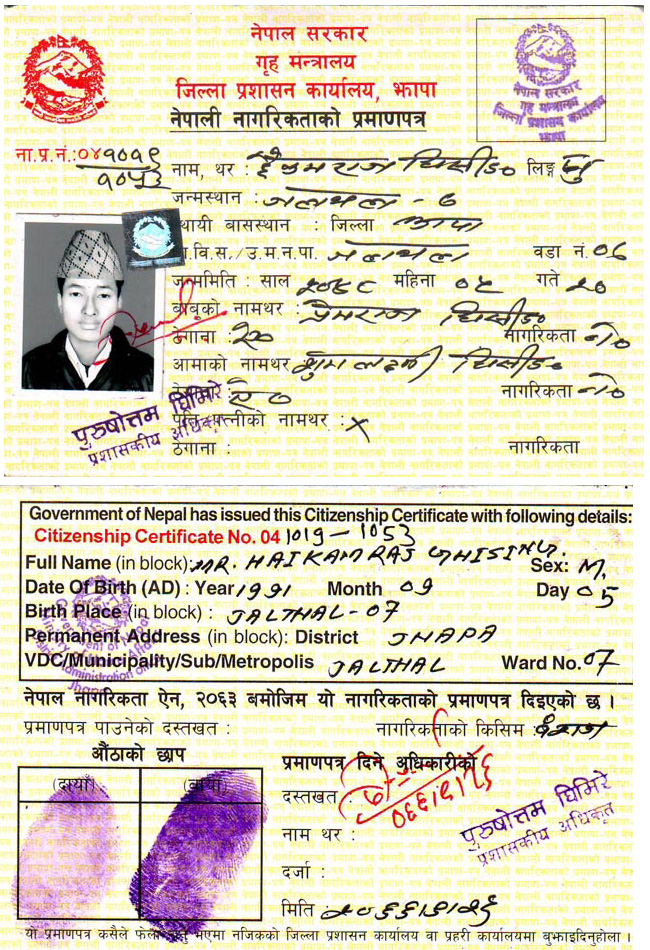 नेपाल सरकार
गृह मन्त्रालय
जिल्ला प्रशासन कार्यालय, झापा
नेपाली नागरिकताको प्रमाणपत्र
नेपाल सरकार
गृह मन्त्रालय
जिल्ला प्रशासन कार्यालय
झापा
ना.प्र.नं.:०४१०१९
१०५३
नाम, थर : हैकमराज घिसीङ लिङ्ग पु
जन्मस्थान : जलथल - ७
स्थायी बासस्थान : जिल्ला झापा
गा.वि.स./उ.म.न.पा. जलथल वडा नं. ०७
जन्ममिति : साल २०४८ महिना ०५ गते २०
बाबुको नामथर : प्रेमराज घिसीङ
ठेगाना : नागरिकता
आमाको नामथर घिसीङ
नागरिकता
पति/पत्नीको नामथर : x
ठेगाना : नागरिकता
पुरुषोत्तम घिमिरे
प्रशासकीय अधिकृत
Government of Nepal has issued this Citizenship Certificate with following details:
Citizenship Certificate No. 04 1019-1053
Full Name (in block): MR. HAIKAM RAJ GHISING. Sex: M.
Date Of Birth (AD) : Year 1991 Month 09 Day 05
Birth Place (in block) : JALTHAL-07
Permanent Address (in block): District JHAPA
VDC/Municipality/Sub/Metropolis JALTHAL Ward No. 07
नेपाल नागरिकता ऐन, २०६३ बमोजिम यो नागरिकताको प्रमाणपत्र दिइएको छ ।
प्रमाणपत्र पाउनेको दस्तखत : नागरिकताको किसिम : वंशज
औंठाको छाप
(दायाँ) (बायाँ)
प्रमाणपत्र दिने अधिकारीको
दस्तखत :
नाम थर :
पुरुषोत्तम घिमिरे
प्रशासकीय अधिकृत
दर्जा :
मिति :
यो प्रमाणपत्र कसैले फेला पारेमा नजिकको जिल्ला प्रशासन कार्यालय वा प्रहरी कार्यालयमा बुझाइदिनुहोला ।